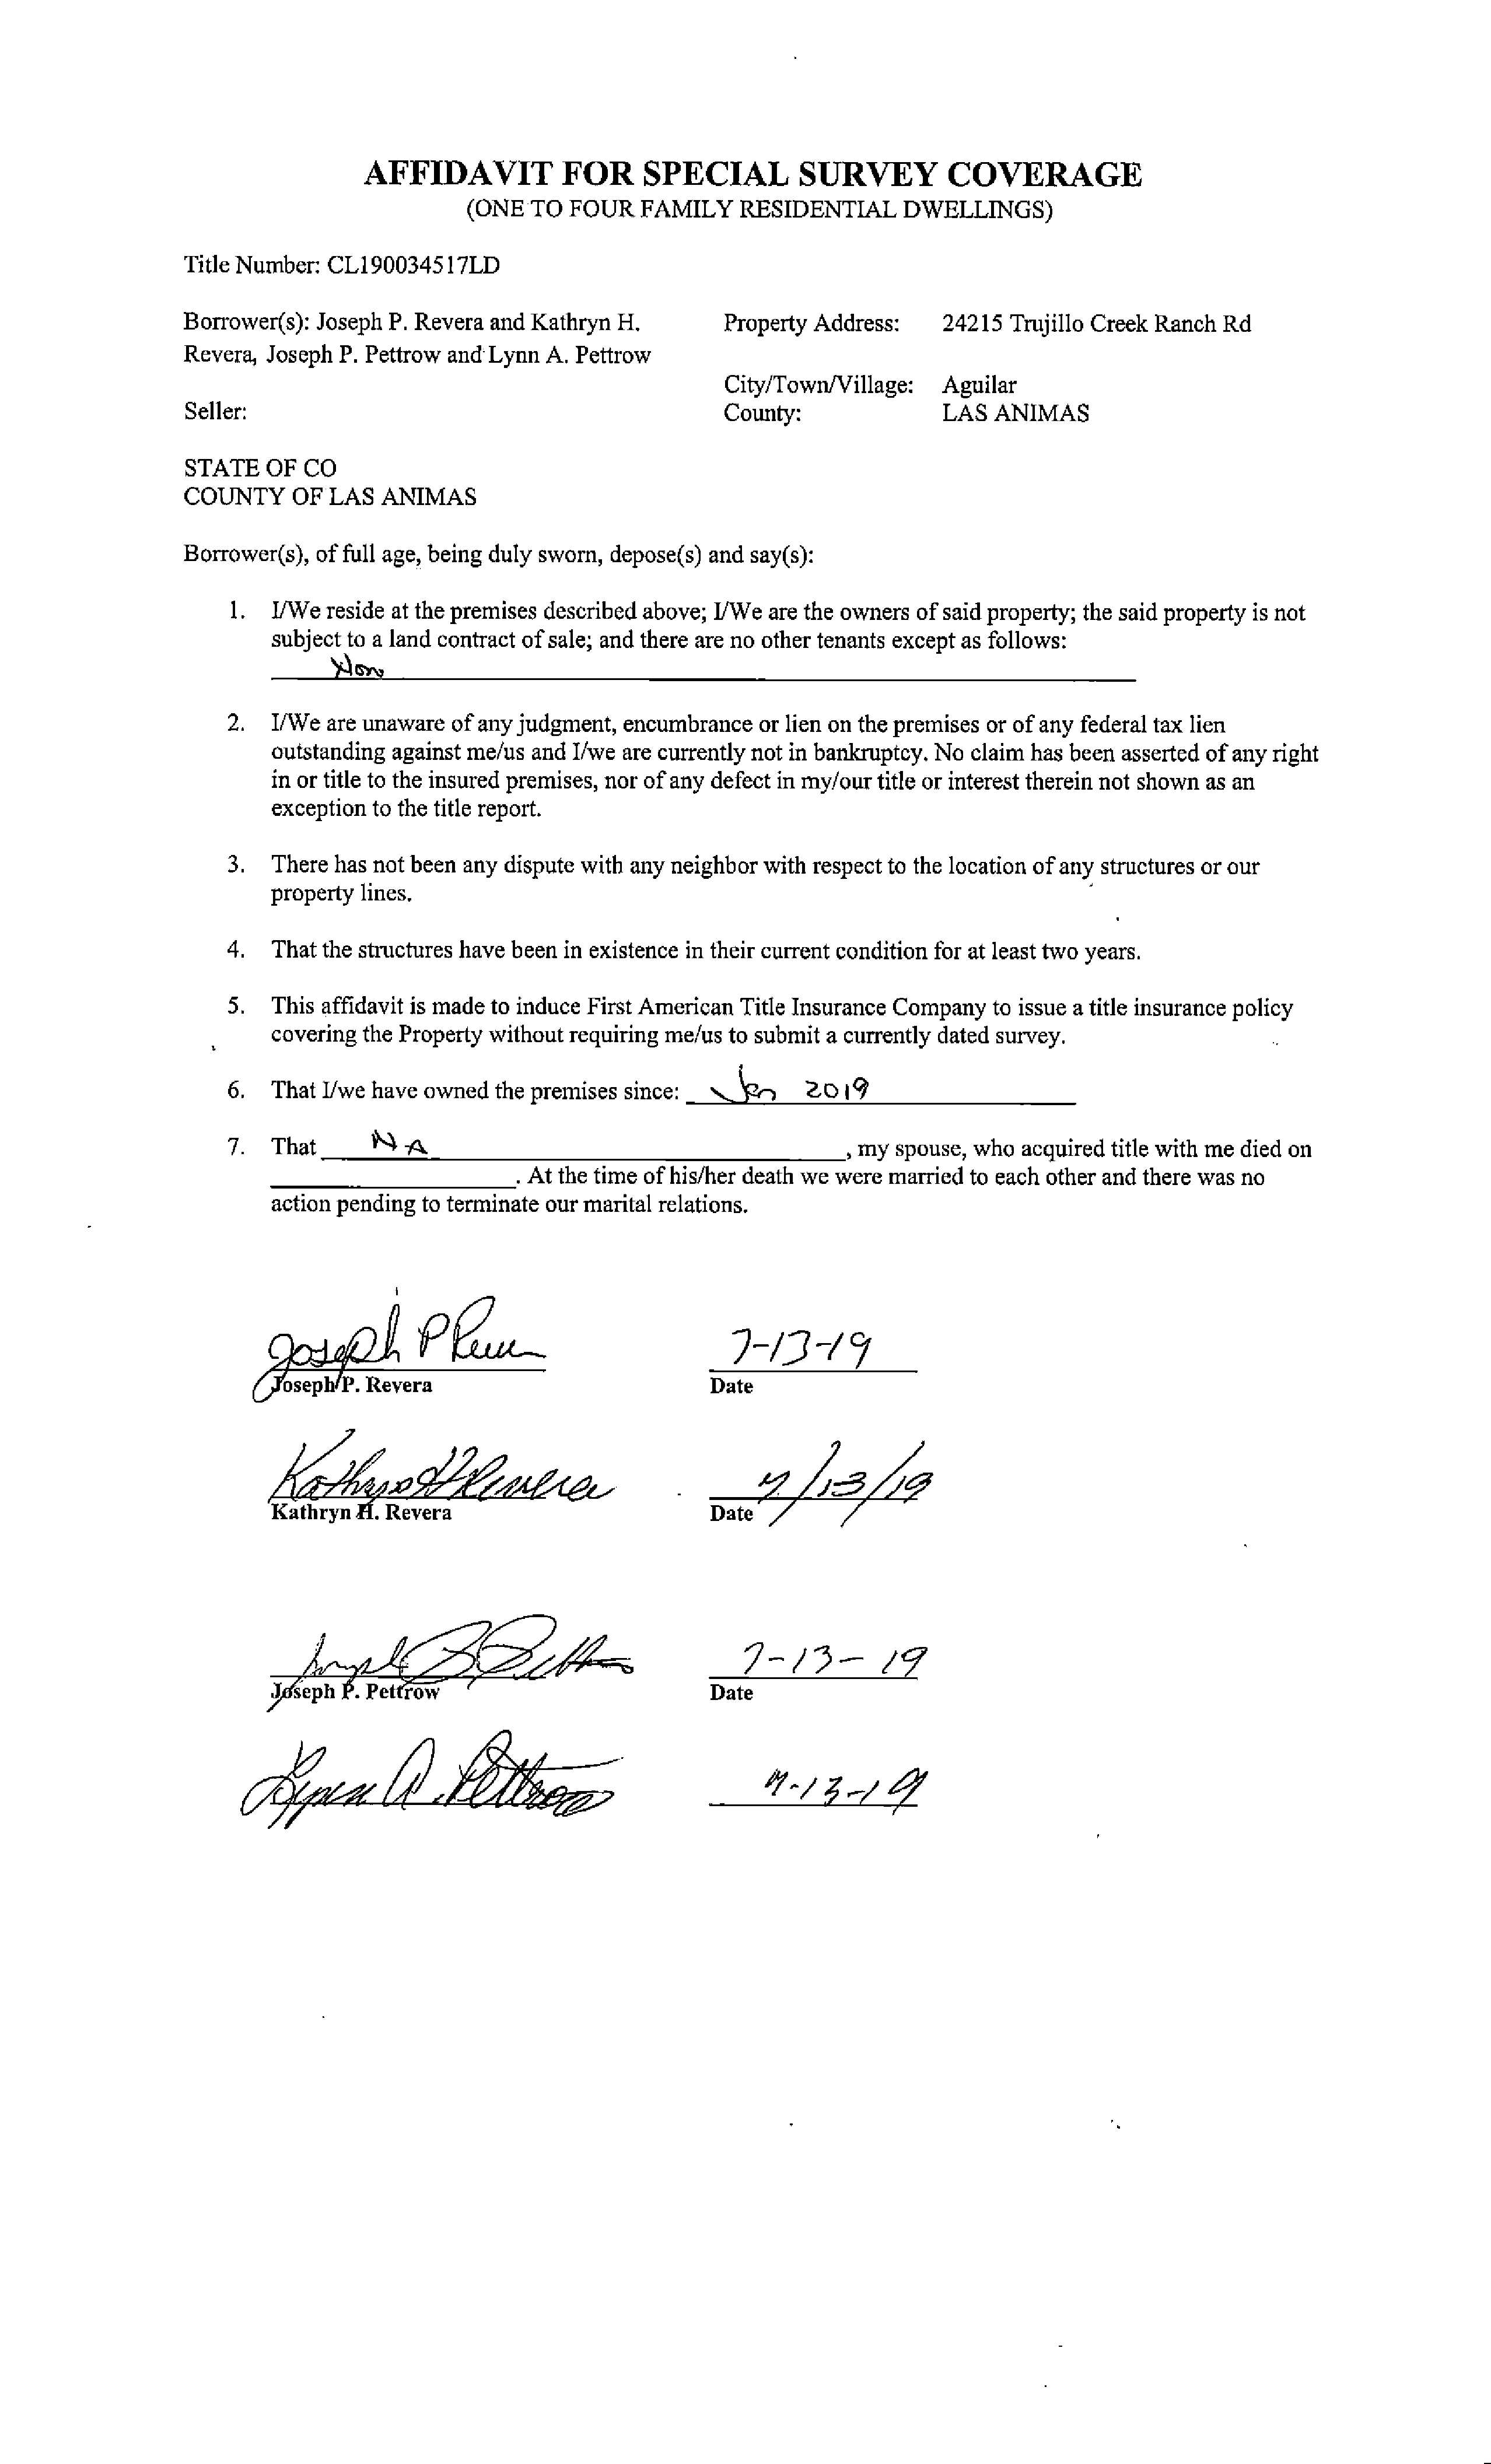 AFFIDAVIT FOR SPECIAL SURVEY COVERAGE
(ONE TO FOUR FAMILY RESIDENTIAL DWELLINGS)
Title Number: CL190034517LD
Borrower(s): Joseph P. Revera and Kathryn H.
Revera, Joseph P. Pettrow and Lynn A. Pettrow
Property Address: 24215 Trujillo Creek Ranch Rd
City/Town/Village: Aguilar
Seller:
County: LAS ANIMAS
STATE OF CO
COUNTY OF LAS ANIMAS
Borrower(s), of full age, being duly sworn, depose(s) and say(s):
1. I/We reside at the premises described above; I/We are the owners of said property; the said property is not
subject to a land contract of sale; and there are no other tenants except as follows:
2. I/We are unaware of any judgment, encumbrance or lien on the premises or of any federal tax lien
outstanding against me/us and I/we are currently not in bankruptcy. No claim has been asserted of any right
in or title to the insured premises, nor of any defect in my/our title or interest therein not shown as an
exception to the title report.
3. There has not been any dispute with any neighbor with respect to the location of any structures or our
property lines.
4. That the structures have been in existence in their current condition for at least two years.
5. This affidavit is made to induce First American Title Insurance Company to issue a title insurance policy
covering the Property without requiring me/us to submit a currently dated survey.
6. That I/we have owned the premises since: Jan 2019
7. That NA, my spouse, who acquired title with me died on
. At the time of his/her death we were married to each other and there was no
action pending to terminate our marital relations.
Joseph P Revera 7-13-19
Joseph P. Revera Date
Kathryn H Revera 7/13/19
Kathryn H. Revera Date
Joseph P. Pettrow 7-13-19
Joseph P. Pettrow Date
Lynn A. Pettrow 7-13-19